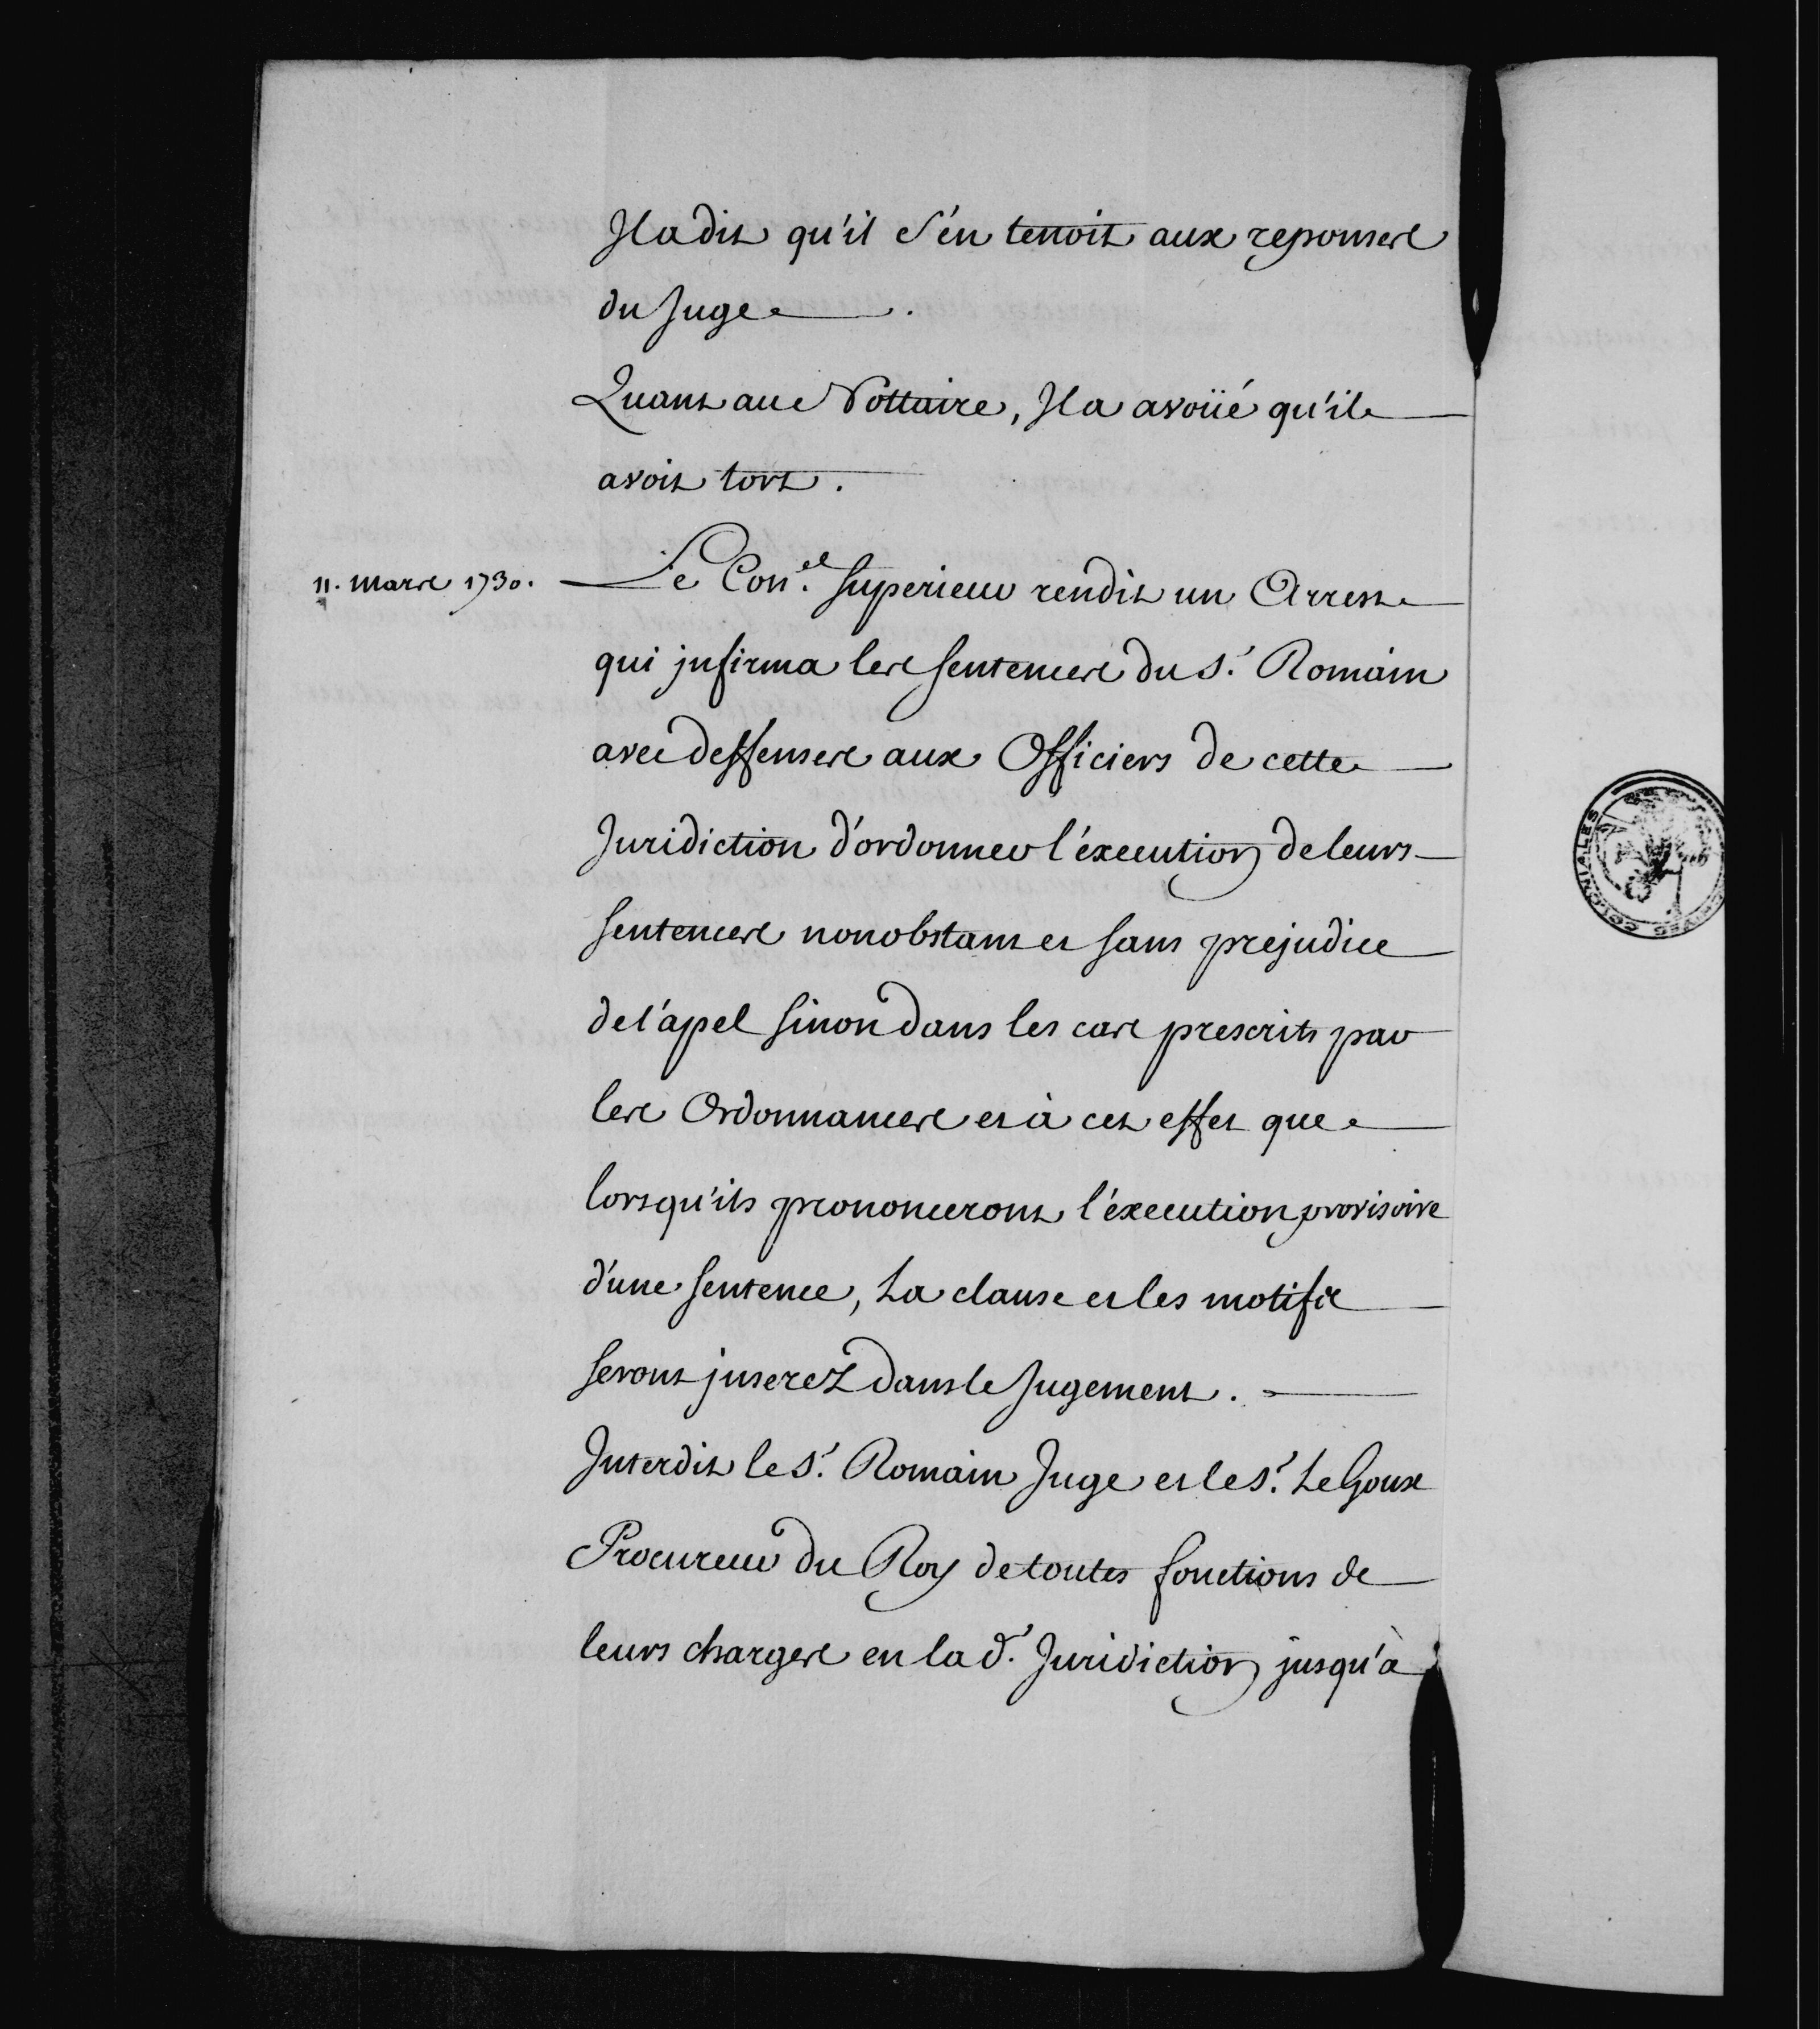 Il a dit qu'il s'en tenoit aux reponses
du Juge.
Quant au Nottaire, Il a avoüé qu'il
avoit tort.
11. mars 1730.
Le Con.el superieur rendit un Arrest
qui infirma les sentences du S.r Romain
avec deffenses aux Officiers de cette
Juridiction d'ordonner l'éxecution de leurs
sentences nonobstant et sans prejudice
de l'apel sinon dans les cas prescrits par
les Ordonnances et à cet effet que
lorsqu'ils prononceront l'éxecution provisoire
d'une sentence, La clause et les motifs
seront inserez dans le Jugement.
Interdit le S.r Romain Juge et le S.r Le Goux
Procureur du Roy de toutes fonctions de
leurs charges en la d.e Juridiction jusqu'à
COLONIALES